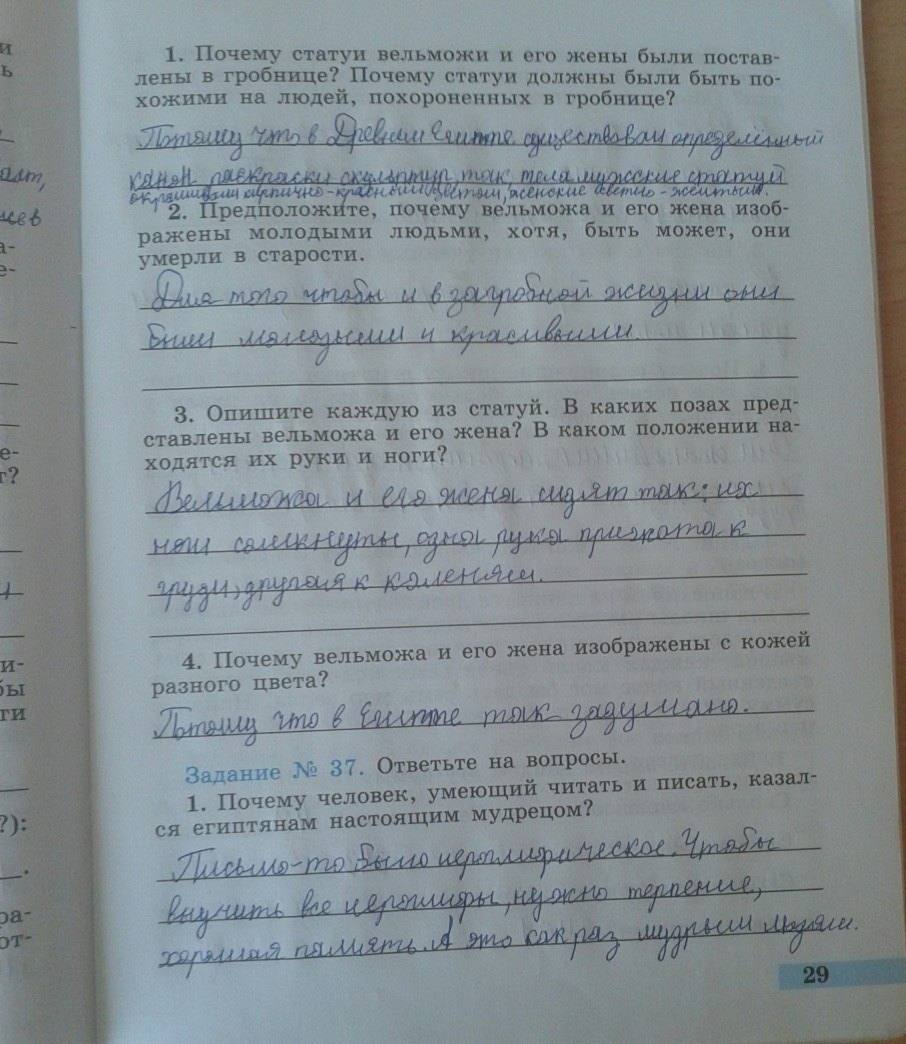 и
ь
алт,
цев
а-
е-
е-
т?
и-
бы
ги
?):
ра-
от-
1. Почему статуи вельможи и его жены были постав-
лены в гробнице? Почему статуи должны были быть по-
хожими на людей, похороненных в гробнице?
Потому что в Древнем Египте существовал определённый
канон раскраски скульптур, так тела мужские статуй
окрашивали кирпично-красным цветом, женские светло-жёлтым.
2. Предположите, почему вельможа и его жена изоб-
ражены молодыми людьми, хотя, быть может, они
умерли в старости.
Для того чтобы и в загробной жизни они
были молодыми и красивыми.
3. Опишите каждую из статуй. В каких позах пред-
ставлены вельможа и его жена? В каком положении на-
ходятся их руки и ноги?
Вельможа и его жена сидят так: их
ноги сомкнуты, одна рука прижата к
груди, другая к коленям.
4. Почему вельможа и его жена изображены с кожей
разного цвета?
Потому что в Египте так задумано.
Задание № 37. Ответьте на вопросы.
1. Почему человек, умеющий читать и писать, казал-
ся египтянам настоящим мудрецом?
Письмо-то было иероглифическое. Чтобы
выучить все иероглифы, нужно терпение,
хорошая память. А это как раз мудрым людям.
29